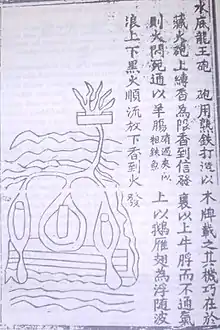 水底龍王砲 砲用熟鐵打造以木牌載之其機巧在於
藏火砲上縛香為限香到信發 裹以上牛脬而不通氣
則火悶死通以羊腸 上以鵝雁翅為浮隨波
浪上下黑火順流放下香到火發